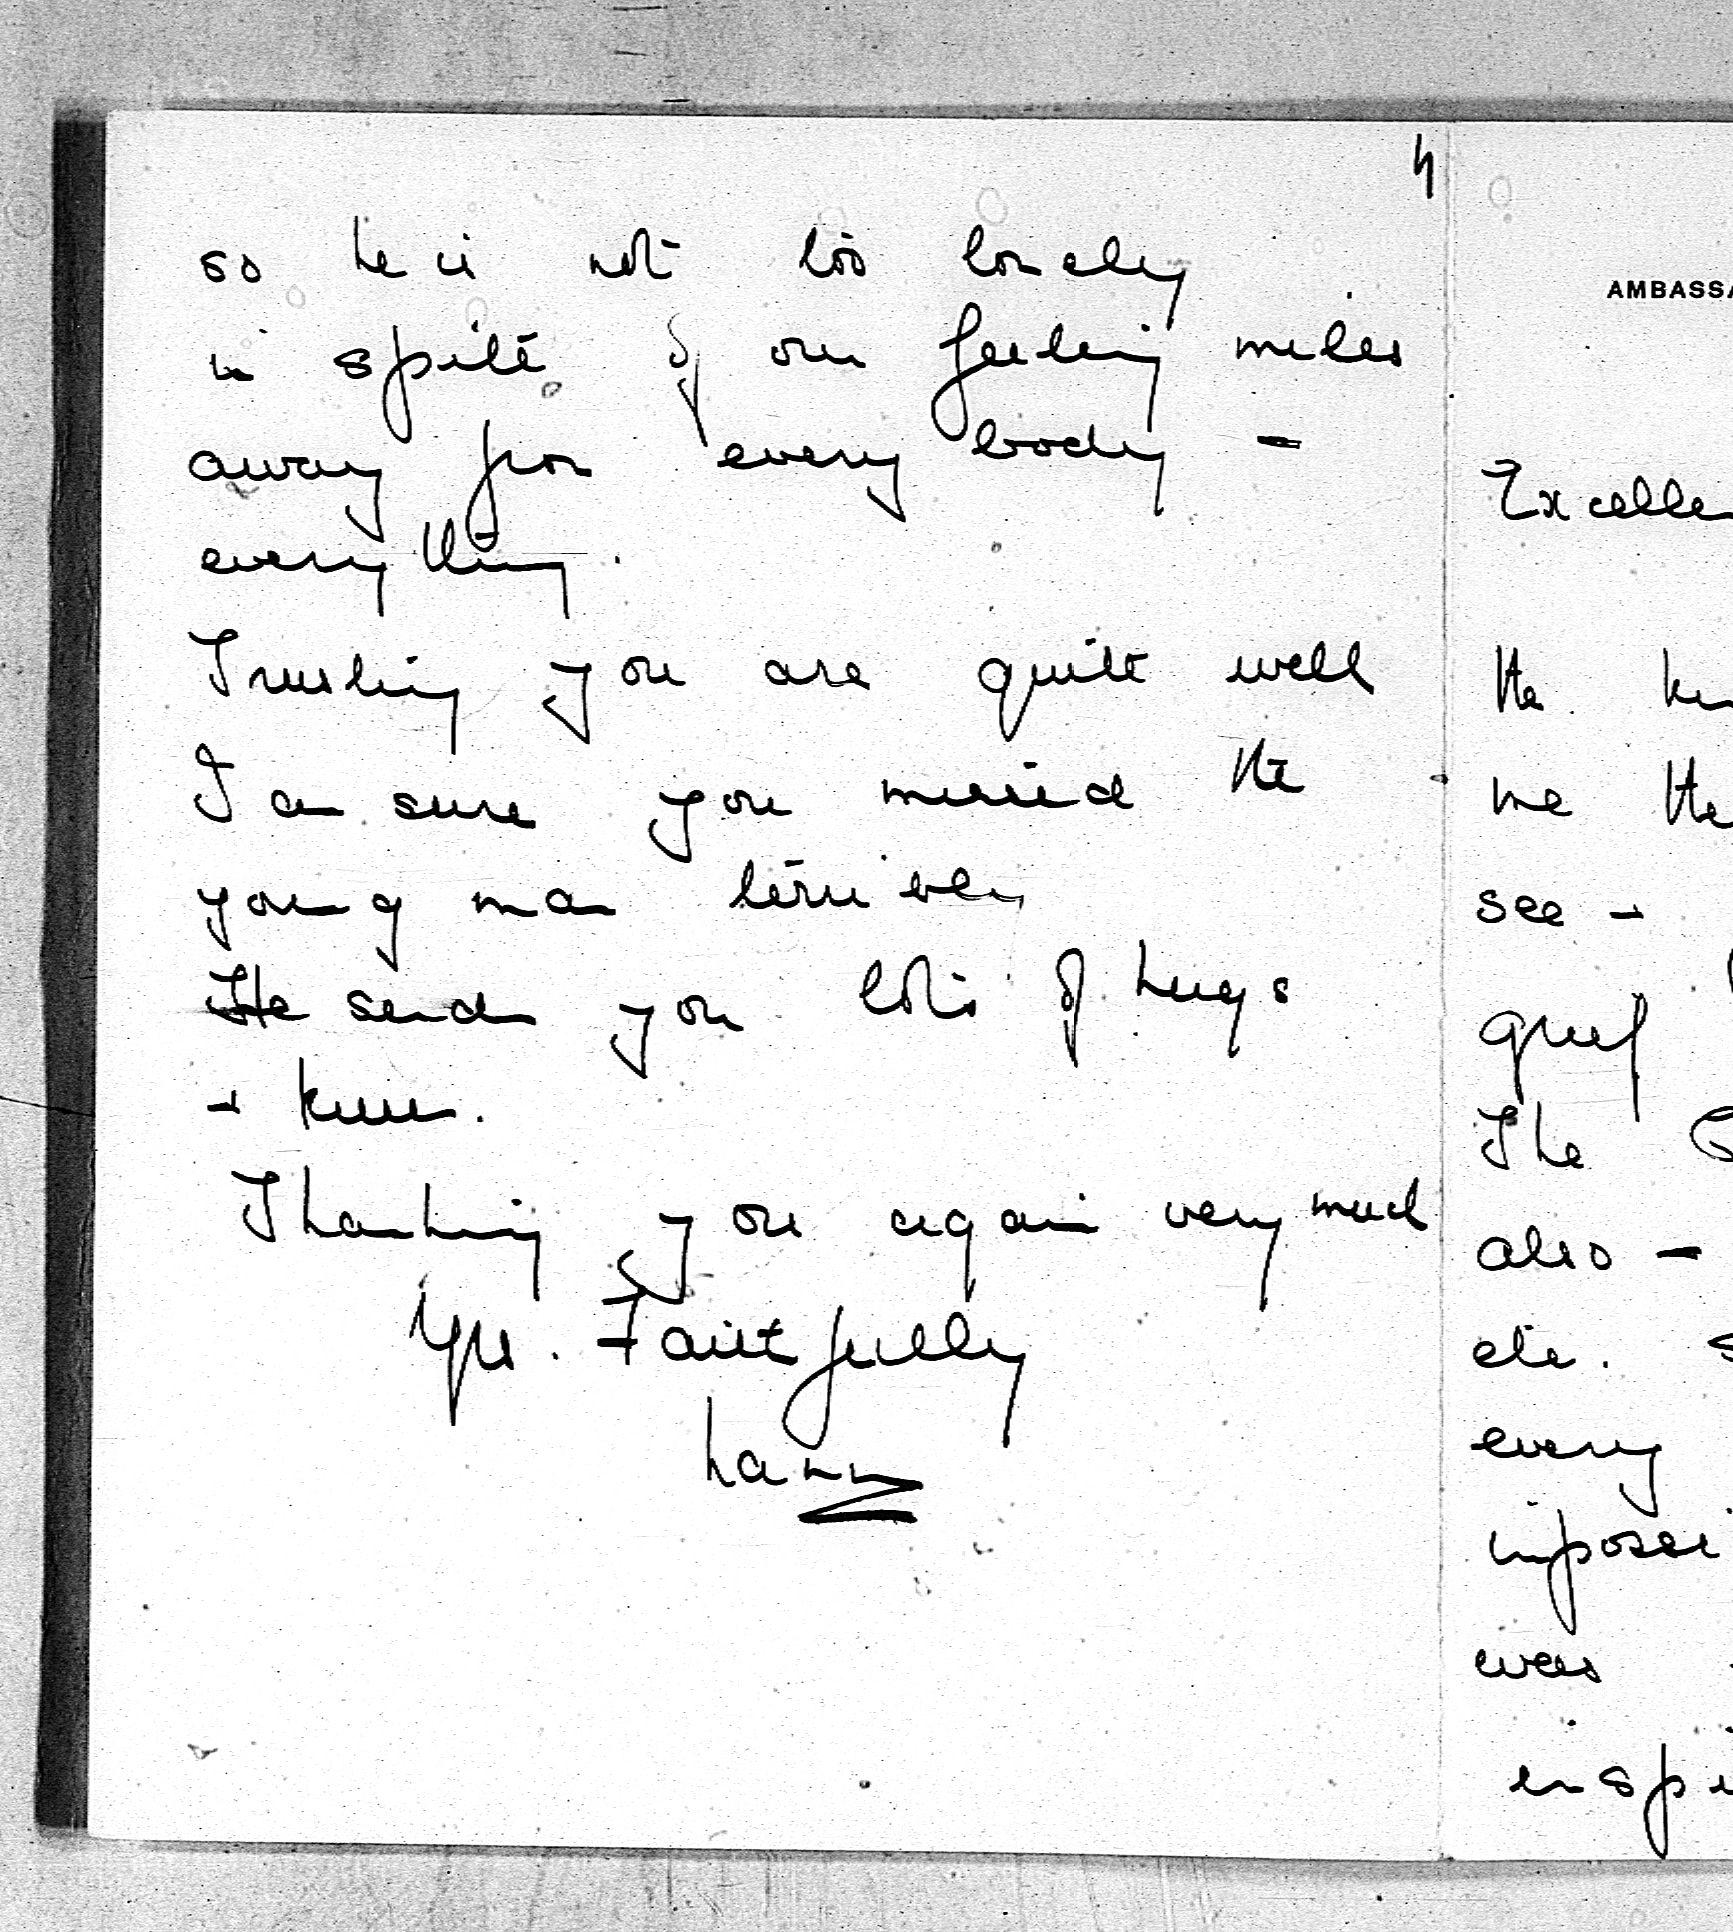 4
so he is not too lonely
in spite of our feeling miles
away from every body -
everything.
Trusting you are quite well
I am sure you missed the
young man terribly
He sends you lots of hugs
+ kisses.
Thanking you again very much
Yrs. Faithfully
AMBASSA
Excelle
the
me the
see -
grief
The
also -
etc. S
every
impossi
was
inspi